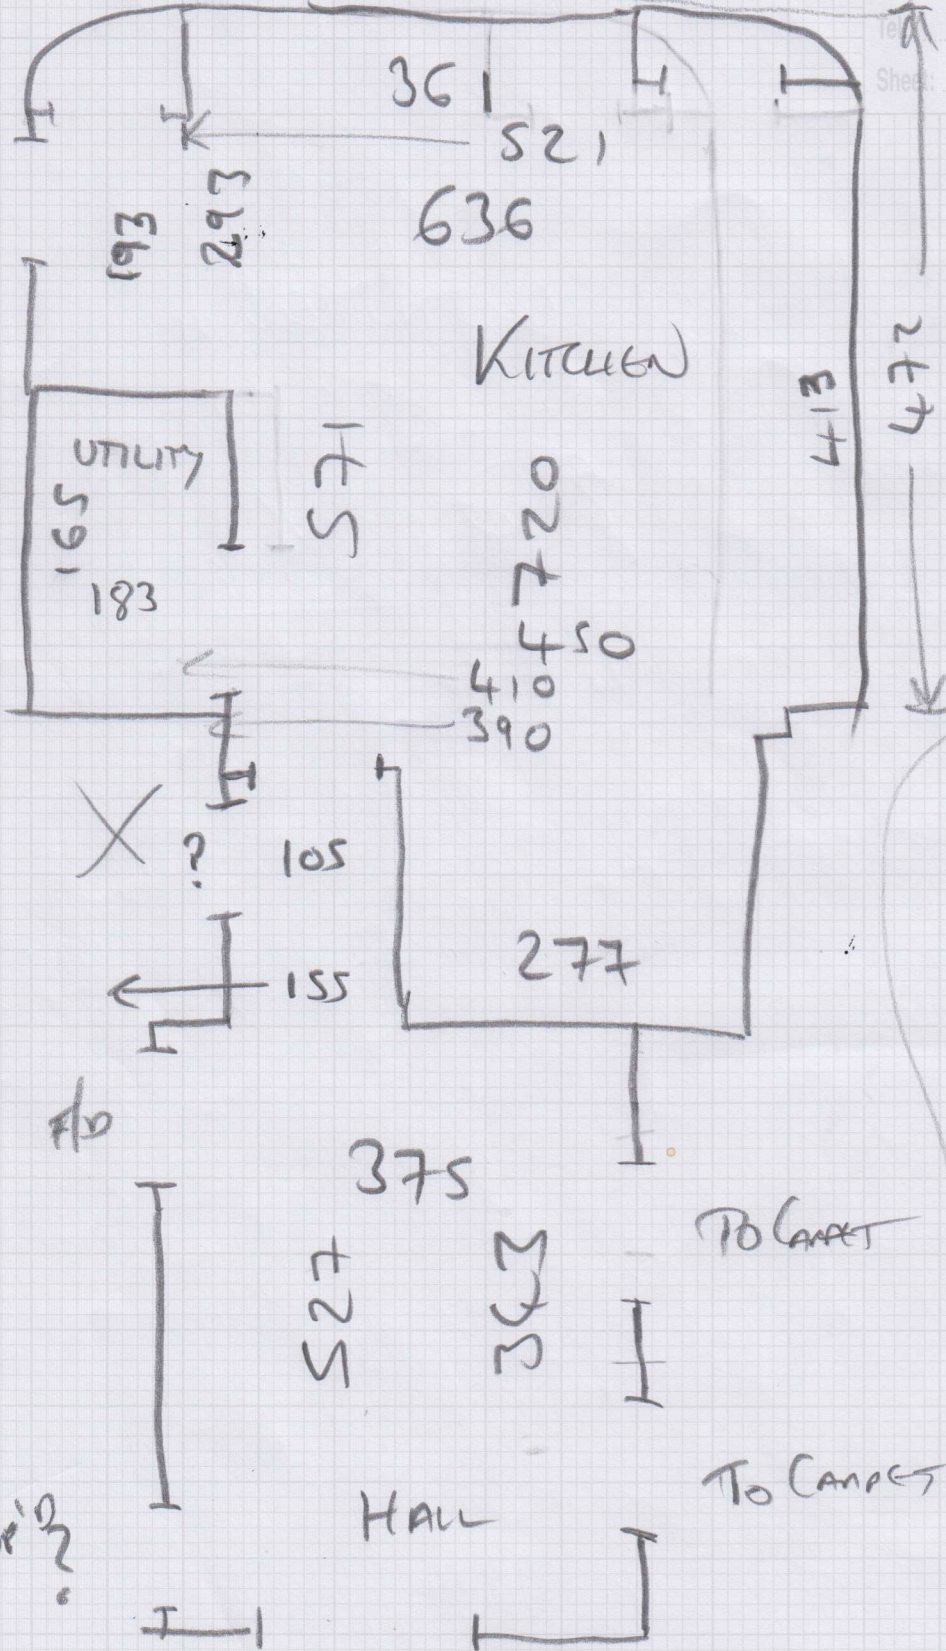 Sheet:
361
521
636
193
293
KITCHEN
413
472
UTILITY
165
183
571
720
450
410
390
X
?
105
277
155
F/D
375
TO CARPET
527
343
TO CARPET
HALL